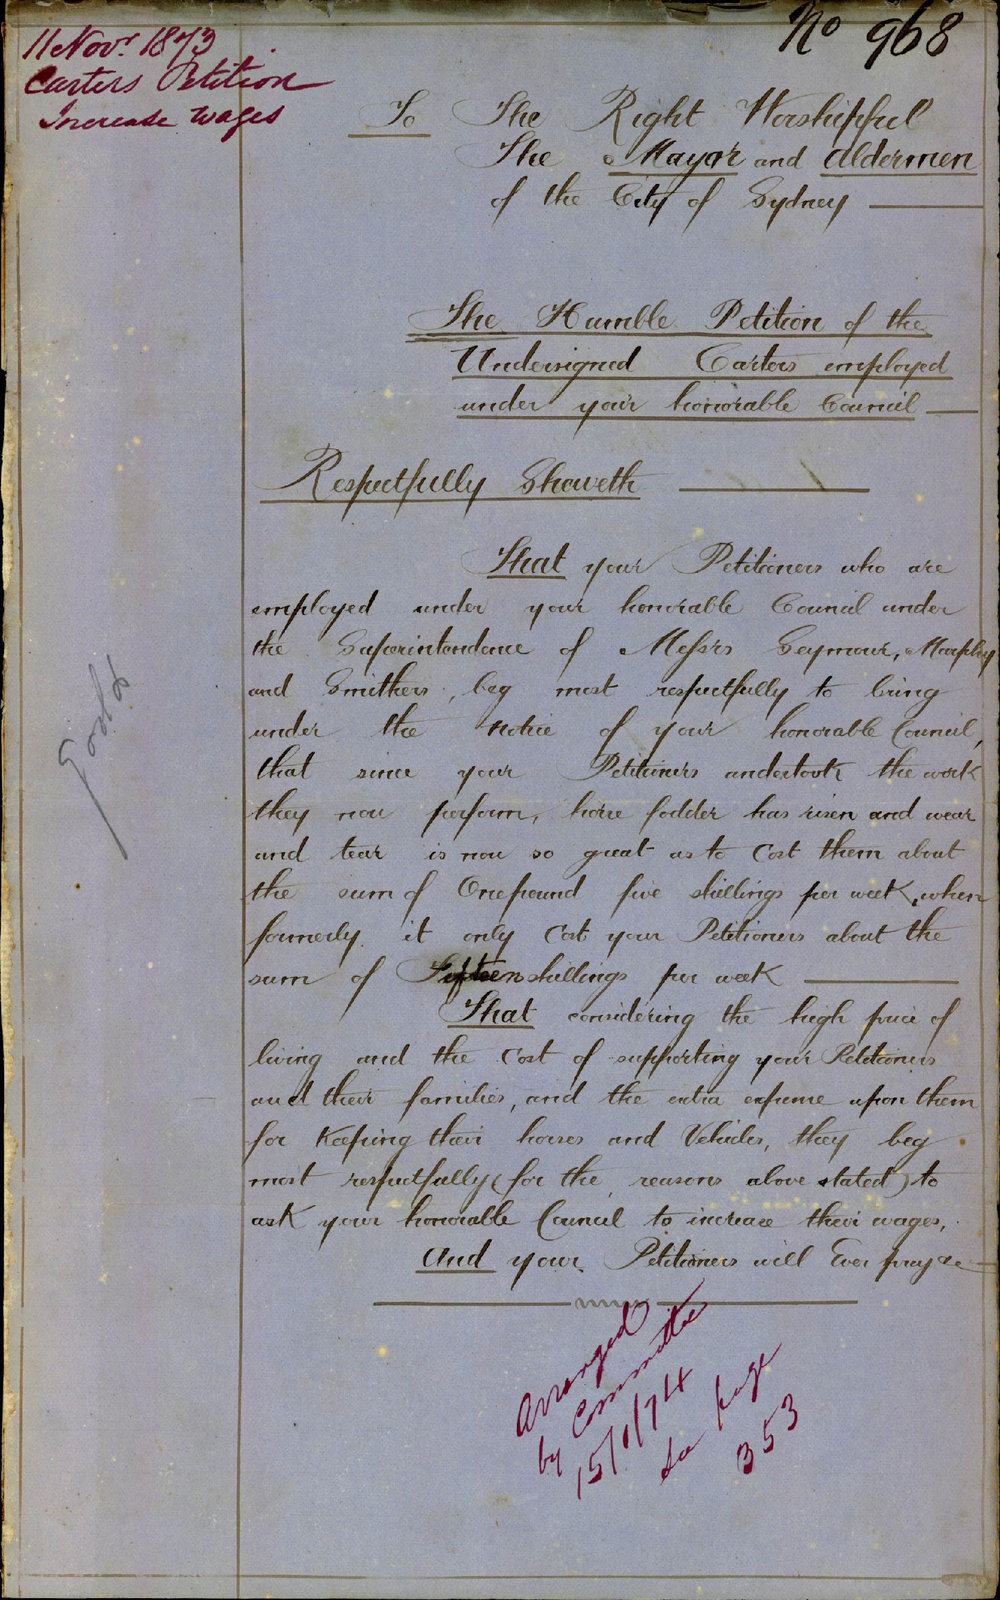 11 Novr. 1873
Carters Petition
Increase Wages
No 968
To The Right Worshipful
The Mayor and Aldermen
of the City of Sydney
The Humble Petition of the
Undersigned Carters employed
under your honorable Council
Respectfully Sheweth
That your Petitioners who are
employed under your honorable Council under
the Superintendence of Messrs Seymour, Murphy
and Smithers, beg most respectfully to bring
under the notice of your honorable Council,
that since your Petitioners undertook the work
they now perform, horse fodder has risen and wear
and tear is now so great as to cost them about
the sum of One pound five shillings per week, when
formerly it only cost your Petitioners about the
sum of Fifteen shillings per week
That considering the high price of
living and the cost of supporting your Petitioners
and their families, and the extra expense upon them
for keeping their horses and Vehicles, they beg
most respectfully (for the reasons above stated) to
ask your honorable Council to increase their wages,
And your Petitioners will Ever pray &c
Arranged
by Committee
15/1/74
See page
353